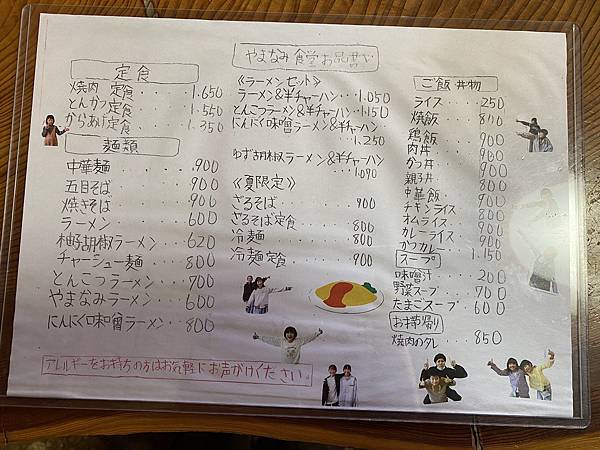 やまなみ食堂お品書き
定食
焼肉 定食・・・1.650
とんかつ定食・・・1.550
からあげ定食・・・1.350
麺類
中華麺・・・・900
五目そば・・・900
焼きそば・・・900
ラーメン・・・600
柚子胡椒ラーメン・・・620
チャーシュー麺・・・800
とんこつラーメン・・・700
やまなみラーメン・・・600
にんにく味噌ラーメン・・800
《ラーメンセット》
ラーメン&半チャーハン・・1.050
とんこつラーメン&半チャーハン・1.150
にんにく味噌ラーメン&半チャーハン
・・1.250
ゆず胡椒ラーメン&半チャーハン
・・1.070
《夏限定》
ざるそば・・・900
ざるそば定食・・・800
冷麺・・・800
冷麺定食・・・900
ご飯 丼物
ライス・・・250
焼飯・・・800
鶏飯・・・900
肉丼・・・900
かつ丼・・・900
親子丼・・・800
中華飯・・・900
チキンライス・・800
オムライス・・・900
カレーライス・・900
かつカレー・・・1.150
スープ
味噌汁・・・200
野菜スープ・・700
たまごスープ・・600
お持帰り
焼肉のタレ・・850
アレルギーをお持ちの方はお気軽にお声がけください。